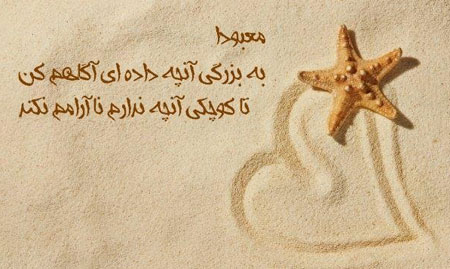 معبودا
به بزرگی آنچه داده ای آگاهم کن
تا کوچکی آنچه ندارم نا آرامم نکند